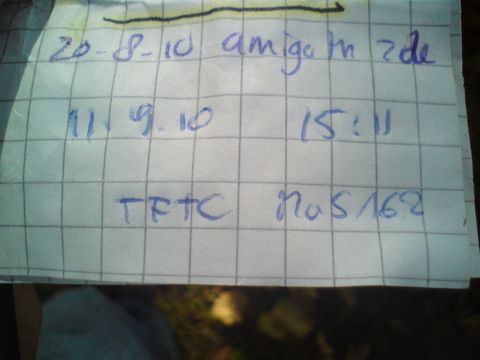 20-8-10 amigam zde
11.9.10 15:11
TFTC MaS162